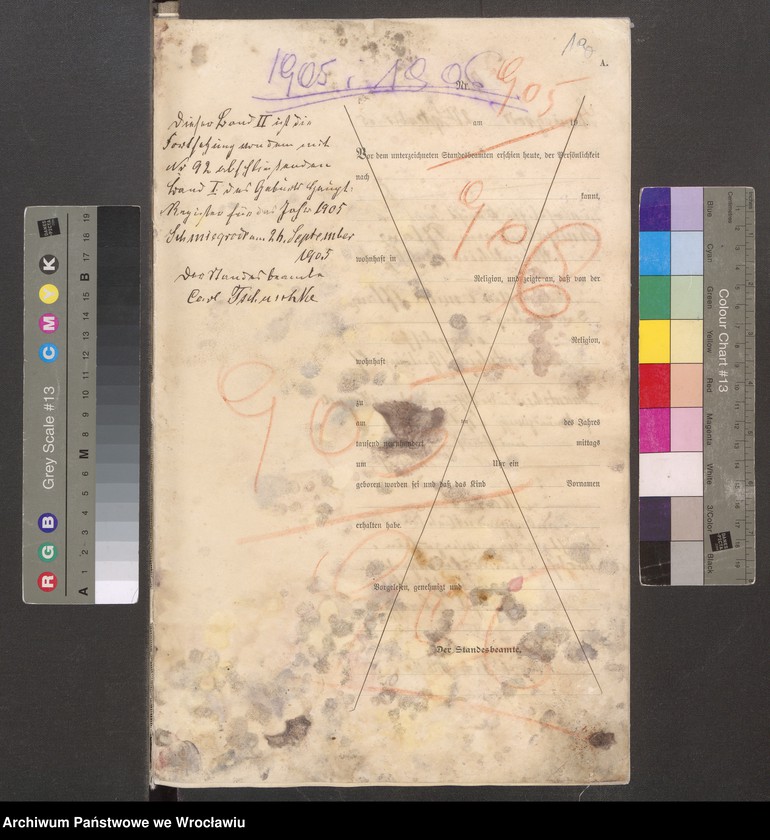 1905. 1906
905
A.
Nr.
am
Dieser Band II ist die
Fortsetzung von dem mit
Nr 92 abschließenden
Band I des Geburts-Haupt-
Registers für das Jahr 1905
Schmiegrode am 26. September
1905
Der Standesbeamte
Carl Tschuschke
Vor dem unterzeichneten Standesbeamten erschien heute, der Persönlichkeit
nach
kannt,
906
wohnhaft in
Religion, und zeigte an, daß von der
Religion,
wohnhaft
905
zu
am
des Jahres
tausend neunhundert
mittags
um
Uhr ein
geboren worden sei und daß das Kind
Vornamen
erhalten habe.
906
Vorgelesen, genehmigt und
Der Standesbeamte.
Grey Scale #13
R G B
C M Y K
A 1 2 3 4 5 6 M 8 9 10 11 12 13 14 15 B 17 18 19
Colour Chart #13
Blue
Cyan
Green
Yellow
Red
Magenta
White
3/Color
Black
Centimetres
Archiwum Państwowe we Wrocławiu